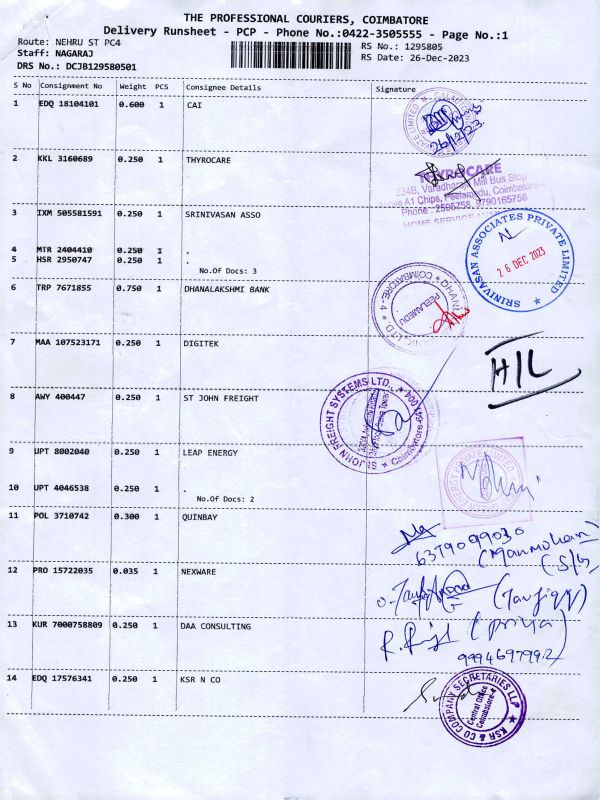 THE PROFESSIONAL COURIERS, COIMBATORE
Delivery Runsheet - PCP - Phone No.:0422-3505555 - Page No.:1
Route: NEHRU ST PC4 RS No.: 1295805
Staff: NAGARAJ RS Date: 26-Dec-2023
DRS No.: DCJB129580501
S No Consignment No Weight PCS Consignee Details Signature
1 EDQ 18104101 0.600 1 CAI
26/12/23
2 KKL 3160689 0.250 1 THYROCARE
THYROCARE
234B, Varadharaja Mill Bus Stop
A1 Chips, Peelamedu, Coimbatore-
Phone : 2595758, 8790165758
HOME SERVICE
3 IXM 505581591 0.250 1 SRINIVASAN ASSO
SRINIVASAN ASSOCIATES PRIVATE LIMITED
26 DEC 2023
4 MTR 2404410 0.250 1 .
5 HSR 2950747 0.250 1 .
No.Of Docs: 3
6 TRP 7671855 0.750 1 DHANALAKSHMI BANK
PEELAMEDU
COIMBATORE - 4
7 MAA 107523171 0.250 1 DIGITEK
H/L
8 AWY 400447 0.250 1 ST JOHN FREIGHT
ST JOHN FREIGHT SYSTEMS LTD.,
Coimbatore-641004
9 UPT 8002040 0.250 1 LEAP ENERGY
10 UPT 4046538 0.250 1 .
No.Of Docs: 2
11 POL 3710742 0.300 1 QUINBAY
6379099030
(Manmohan)
12 PRO 15722035 0.035 1 NEXWARE
(Taufiqq)
13 KUR 7000758809 0.250 1 DAA CONSULTING
(Priya)
9994697992
14 EDQ 17576341 0.250 1 KSR N CO
KSR & CO COMPANY SECRETARIES LLP
Central Office
Coimbatore-4